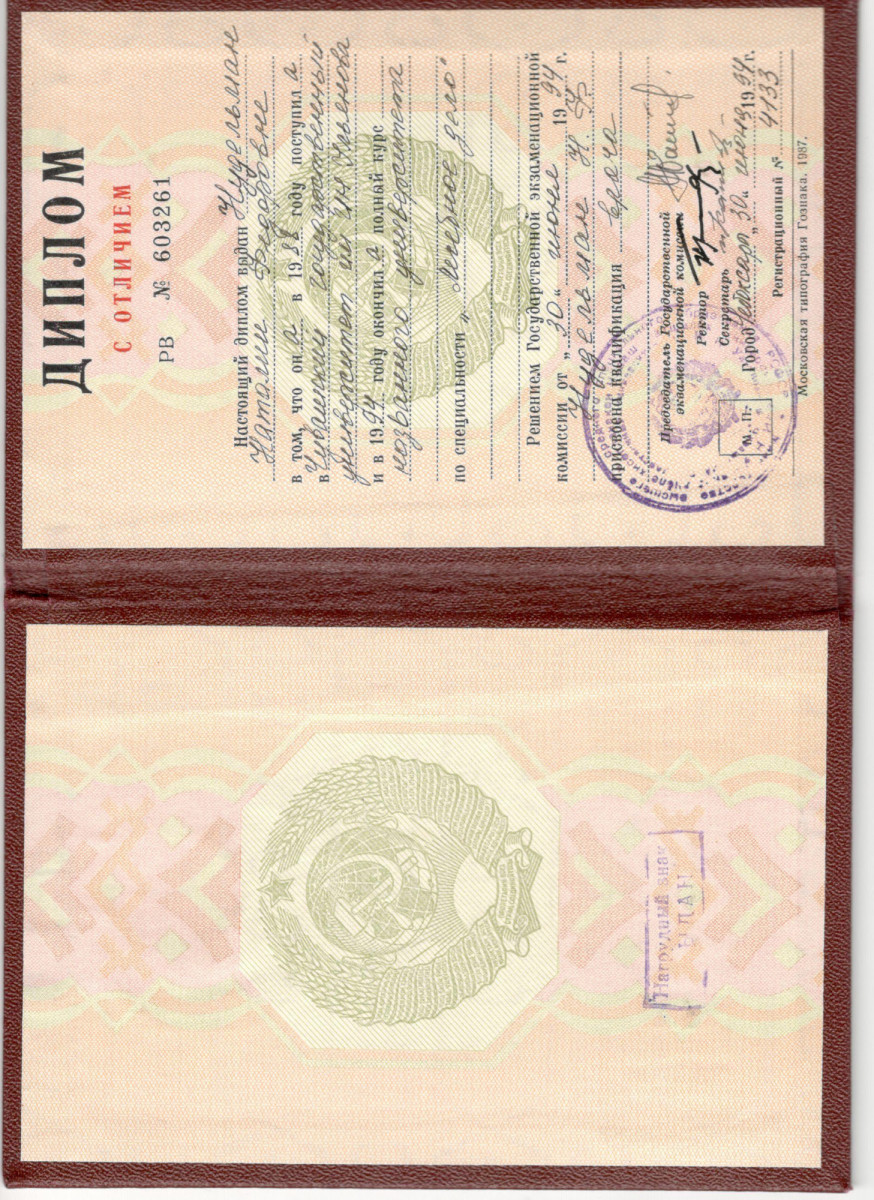 ДИПЛОМ
С ОТЛИЧИЕМ
РВ № 603261
Настоящий диплом выдан Нудельман
Наталии Федоровне
в том, что он а в 1988 году поступил а
в Чувашский государственный
университет им. И.Н. Ульянова
и в 1994 году окончил а полный курс
названного университета
по специальности „Лечебное дело"
Решением Государственной экзаменационной
комиссии от „30" июня 1994 г.
Нудельман Н. Ф.
присвоена квалификация врача
Председатель Государственной
экзаменационной комиссии
Ректор
Секретарь
Город Чебоксары „30" июня 1994 г.
М. П.
Регистрационный № 4133
Московская типография Гознака. 1987.
Нагрудный знак
ВЫДАН